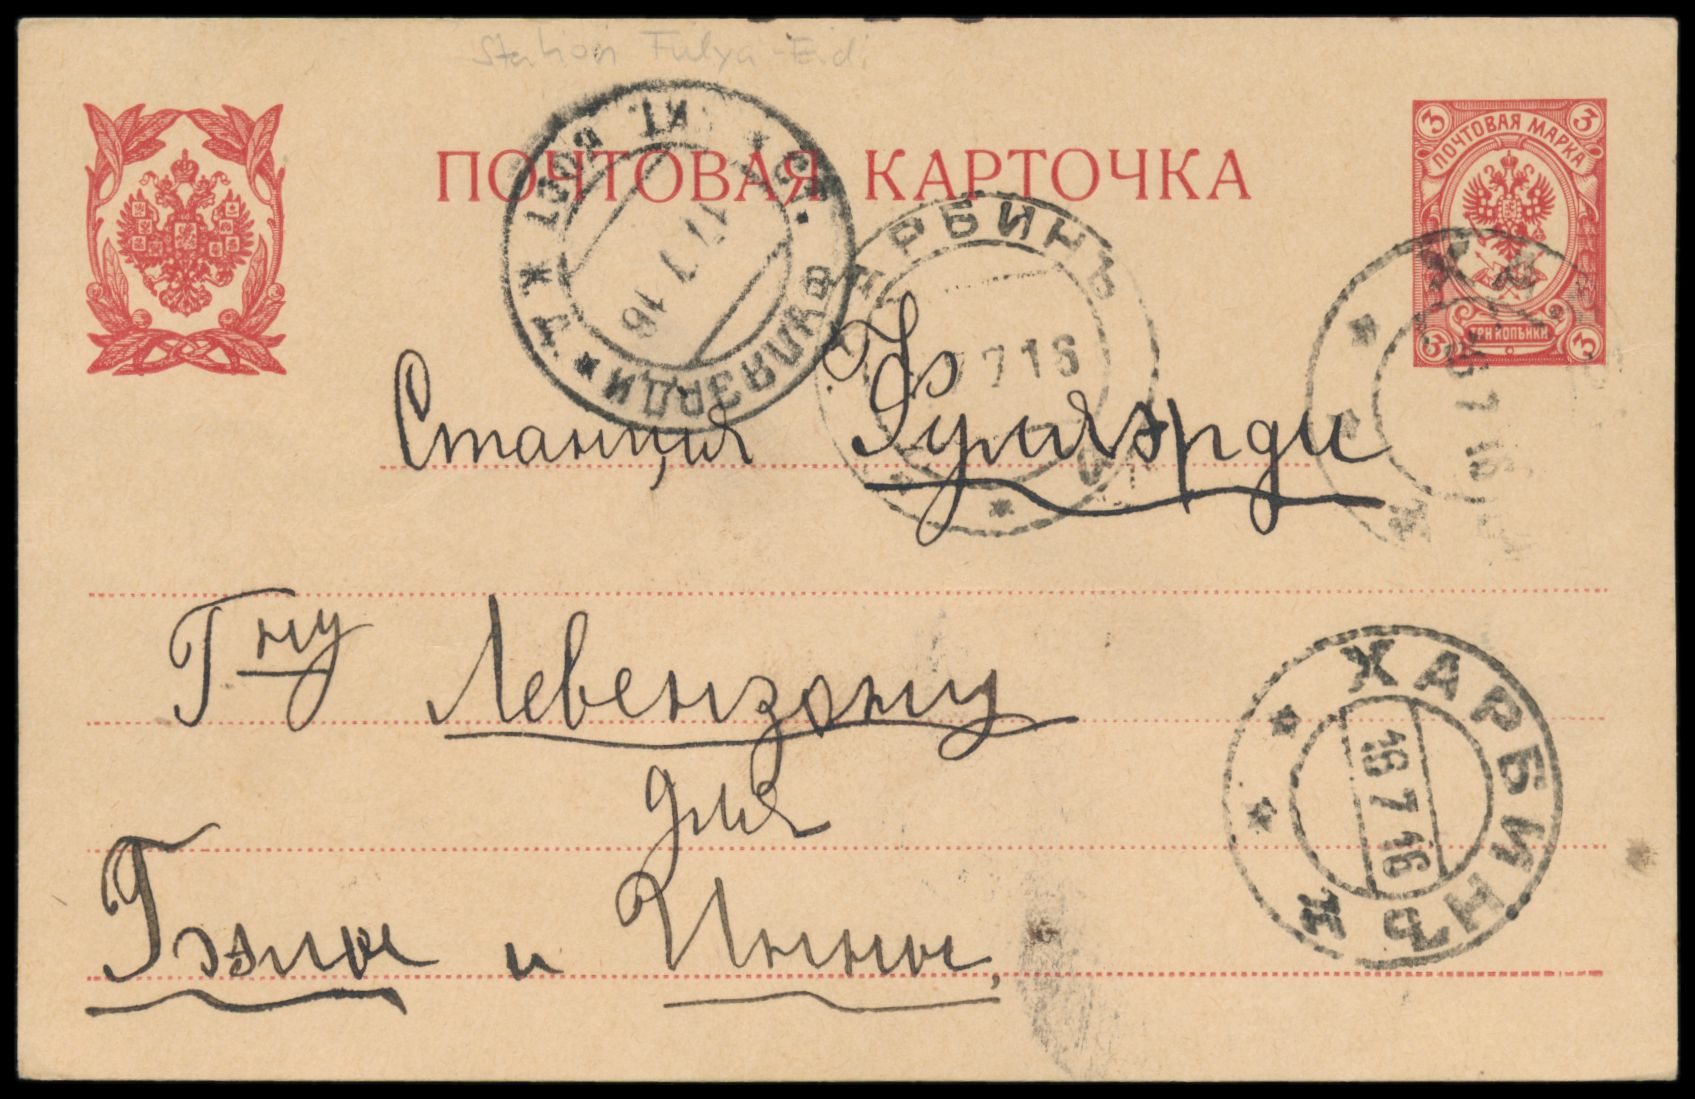 Station Fulya-Erdi
ПОЧТОВАЯ КАРТОЧКА
3 3
ПОЧТОВАЯ МАРКА
ТРИ КОПѢЙКИ
3 3
ФУЛЯЭРДИ
Ж. Д. ПОЧТ.
17 7 16
ХАРБИНЪ
7 7 16
ХА
16 7 16
Станция Фуляэрди
Гну Левензону
для
Бэлы и Инны,
ХАРБИНЪ
16 7 16